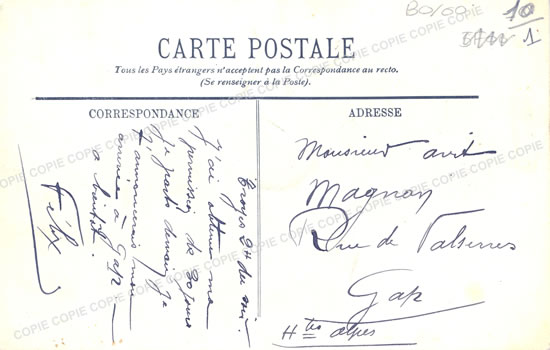 10
1
CARTE POSTALE
Tous les Pays étrangers n'acceptent pas la Correspondance au recto.
(Se renseigner à la Poste).
CORRESPONDANCE
Troyes 2H du soir.
J'ai obtenu ma
permission de 30 jours
je partir demain je
t'annoncerai mon
arrivée à Gap
a bientôt.
Félix
ADRESSE
Monsieur
Magnan
Rue de Valserres
Gap
Htes alpes
COPIE COPIE COPIE COPIE COPIE COPIE